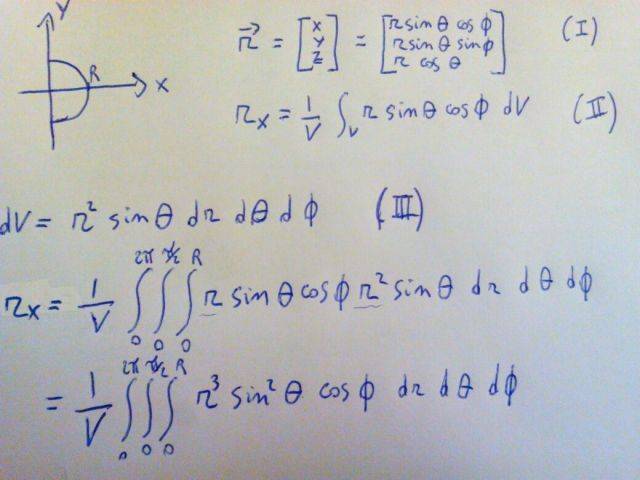 y
R
x
r⃗ = [x y z] = [r sinθ cos ϕ r sinθ sinϕ r cos θ] (I)
r_x = 1/V ∫_V r sinθ cosϕ dV (II)
dV = r² sinθ dr dθ dϕ (III)
r_x = 1/V ∫₀^{2π} ∫₀^{π/2} ∫₀^R r sinθ cosϕ r² sinθ dr dθ dϕ
= 1/V ∫₀^{2π} ∫₀^{π/2} ∫₀^R r³ sin²θ cos ϕ dr dθ dϕ